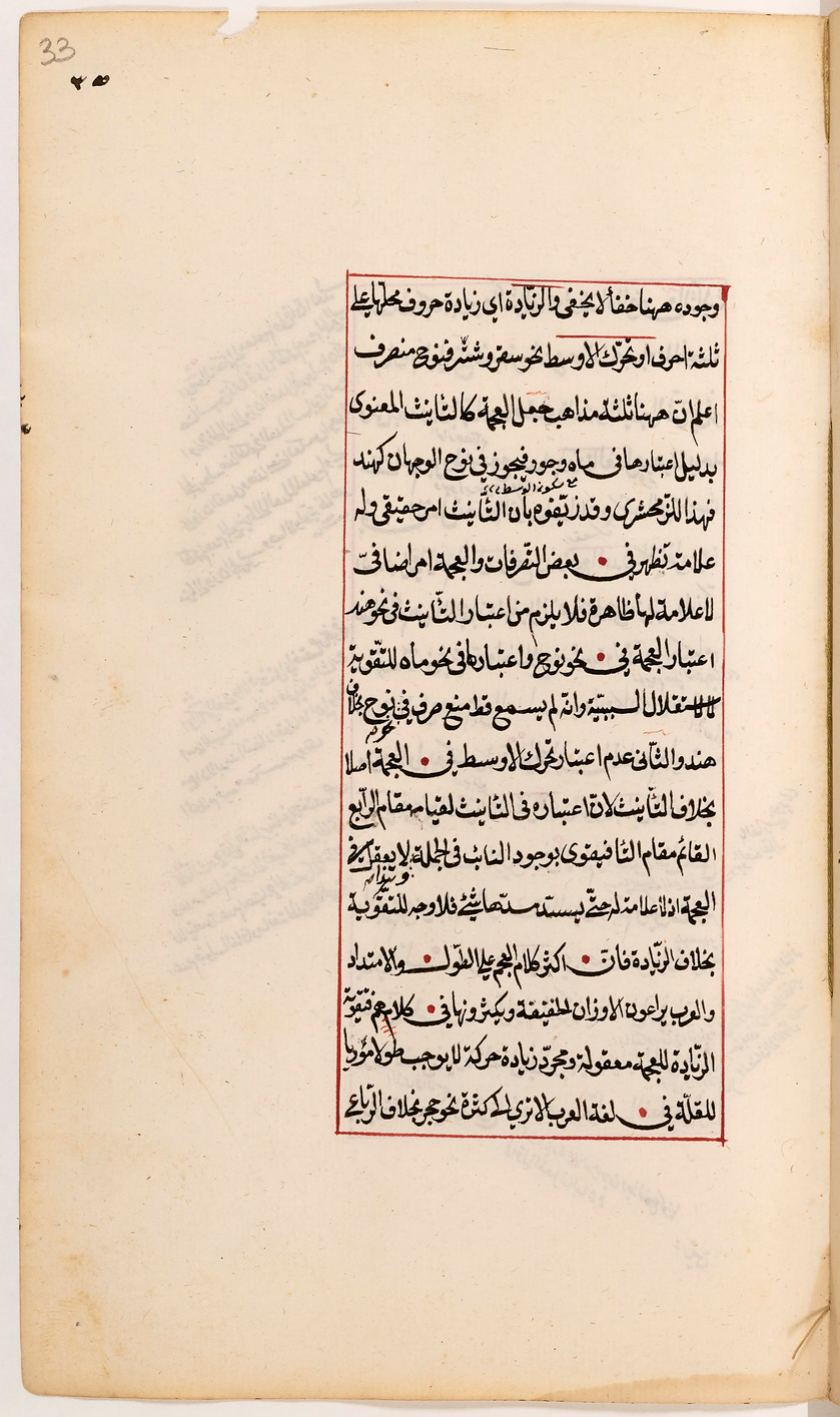 33
٣٥
وجوده ههنا خفأ لا يخفى والزيّادة اى زيادة حروف محلها على
ثلثة احرف او تحرّك الاوسط نحو سقر وشتر فنوح منصرف
اعلم انّ ههنا ثلثة مذاهب جعل العجمة كالتانيث المعنوى
بدليل اعتبارها فى ماه وجور فيجوز فى نوح الوجهان كهند
مع سكون الاوسط
فهذا للزمخشرى وقد زيفوه بأن التّانيث امر حقيقى وله
علامة تظهر فى بعض التّصرفات والعجمة امر اضافىّ
لا علامة لها ظاهرة فلا يلزم من اعتبار التّانيث فى نحو هند
اعتبار العجمة فى نحو نوح واعتبارها فى نحو ماه للتّقوية
لا لاستقلال السببيّة وانّه لم يسمع قط منع صرف فى نوح بخلاف
هند والثّانى عدم اعتبار تحرك الاوسط فى العجمة اصلا
بخلاف التّانيث لانّ اعتباره فى التانيث لقيامه مقام الرّابع
القائم مقام التا فيقوى بوجود النائب فى الجملة لا يعقل فى
العجمة اذ لا علامة له حتّى يسدّ مسدّها شئ فلا وجه للتّقوية
بخلاف الزيّادة فانّ اكثر كلام العجم على الطّول والامتداد
والعرب يراعون الاوزان الخفيفة ويكثرونها فى كلامهم فتقوية
الزيّادة للعجمة معقولة ومجرّد زيادة حركة لا يوجب طولا مؤديا
للقلّة فى لغة العرب الا ترى الى كثرة نحو حجر بخلاف الرّباعى